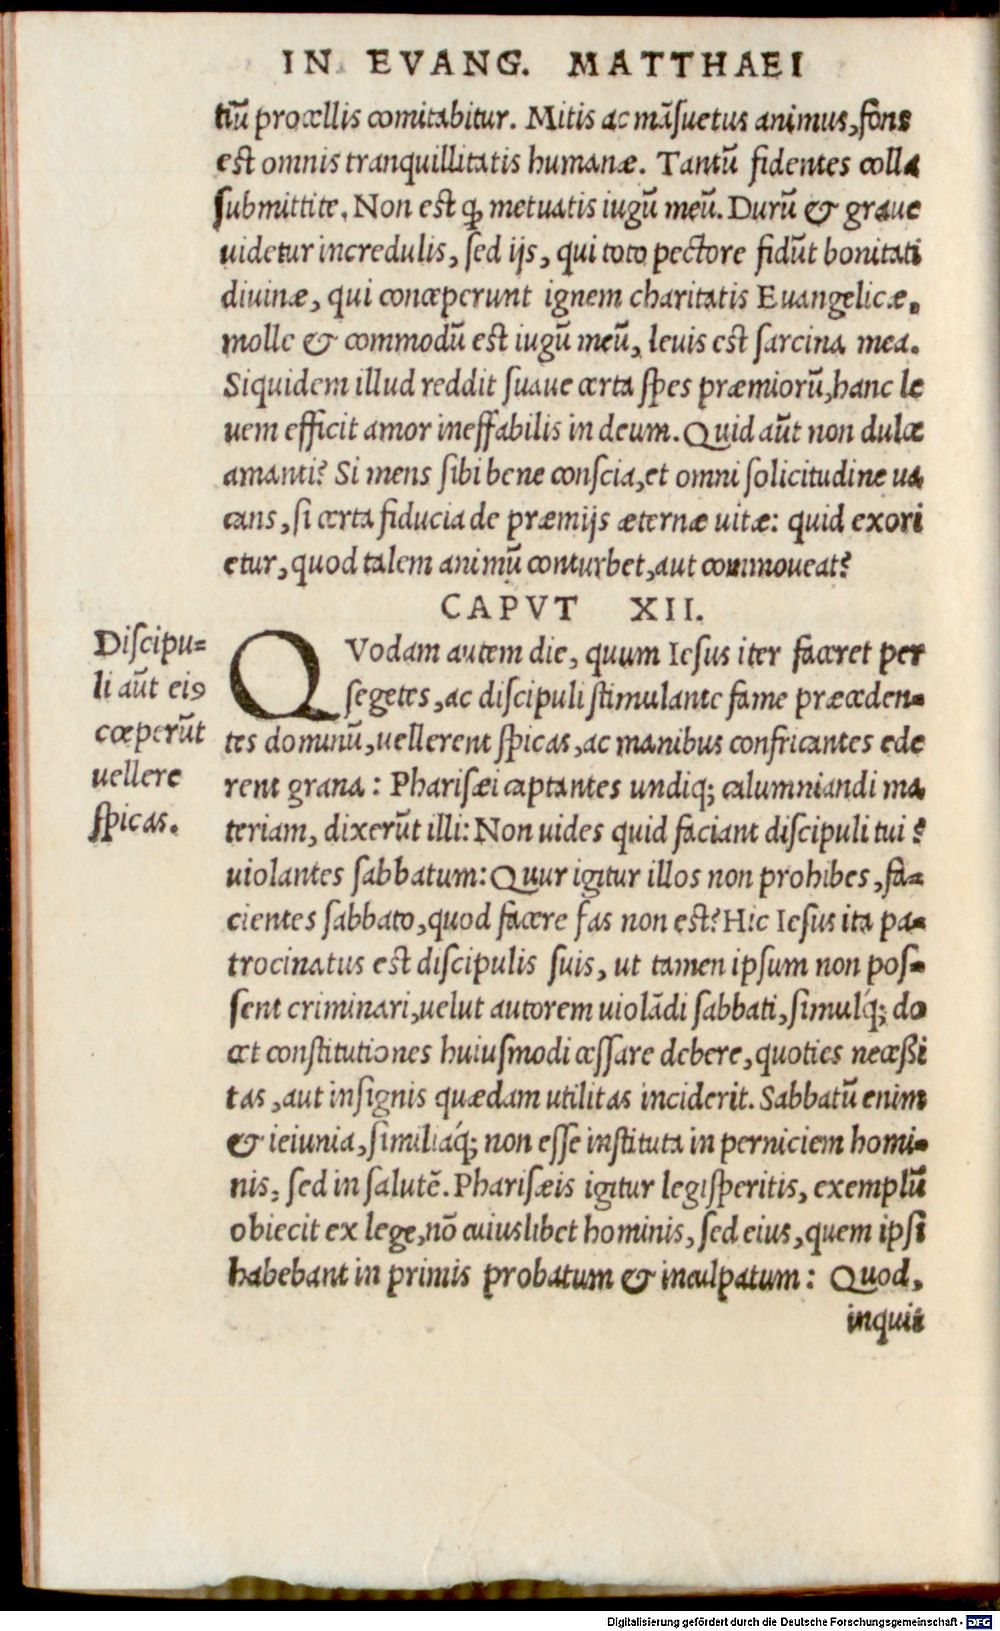 IN EVANG. MATTHAEI
tiũ procellis comitabitur. Mitis ac mãſuetus animus, fons
eſt omnis tranquillitatis humanæ. Tantũ fidentes colla
ſubmittite. Non eſt ꝙ metuatis iugũ meũ. Durũ & graue
uidetur incredulis, ſed ijs, qui toto pectore fidũt bonitati
diuinæ, qui conceperunt ignem charitatis Euangelicæ,
molle & commodũ eſt iugũ meũ, leuis eſt ſarcina mea.
Siquidem illud reddit ſuaue certa ſpes præmiorũ, hanc le
uem efficit amor ineffabilis in deum. Quid aũt non dulce
amanti? Si mens ſibi bene conſcia, et omni ſolicitudine ua
cans, ſi certa fiducia de præmijs æternæ uitæ: quid exori
etur, quod talem animũ conturbet, aut commoueat?
CAPVT XII.
Diſcipu=
li aũt eiꝰ
cœperũt
uellere
ſpicas.
QVodam autem die, quum Ieſus iter faceret per
ſegetes, ac diſcipuli ſtimulante fame præceden=
tes dominũ, uellerent ſpicas, ac manibus confricantes ede
rent grana: Phariſæi captantes undiq; calumniandi ma
teriam, dixerũt illi: Non uides quid faciant diſcipuli tui?
uiolantes ſabbatum: Quur igitur illos non prohibes, fa=
cientes ſabbato, quod facere fas non eſt? Hic Ieſus ita pa=
trocinatus eſt diſcipulis ſuis, ut tamen ipſum non poſ=
ſent criminari, uelut autorem uiolãdi ſabbati, ſimulq́; do
cet conſtitutiones huiuſmodi ceſſare debere, quoties neceßi
tas, aut inſignis quædam utilitas inciderit. Sabbatũ enim
& ieiunia, ſimiliaq́; non eſſe inſtituta in perniciem homi=
nis, ſed in ſalutẽ. Phariſæis igitur legiſperitis, exemplũ
obiecit ex lege, nõ cuiuslibet hominis, ſed eius, quem ipſi
habebant in primis probatum & inculpatum: Quod,
inquit
Digitalisierung gefördert durch die Deutsche Forschungsgemeinschaft - DFG